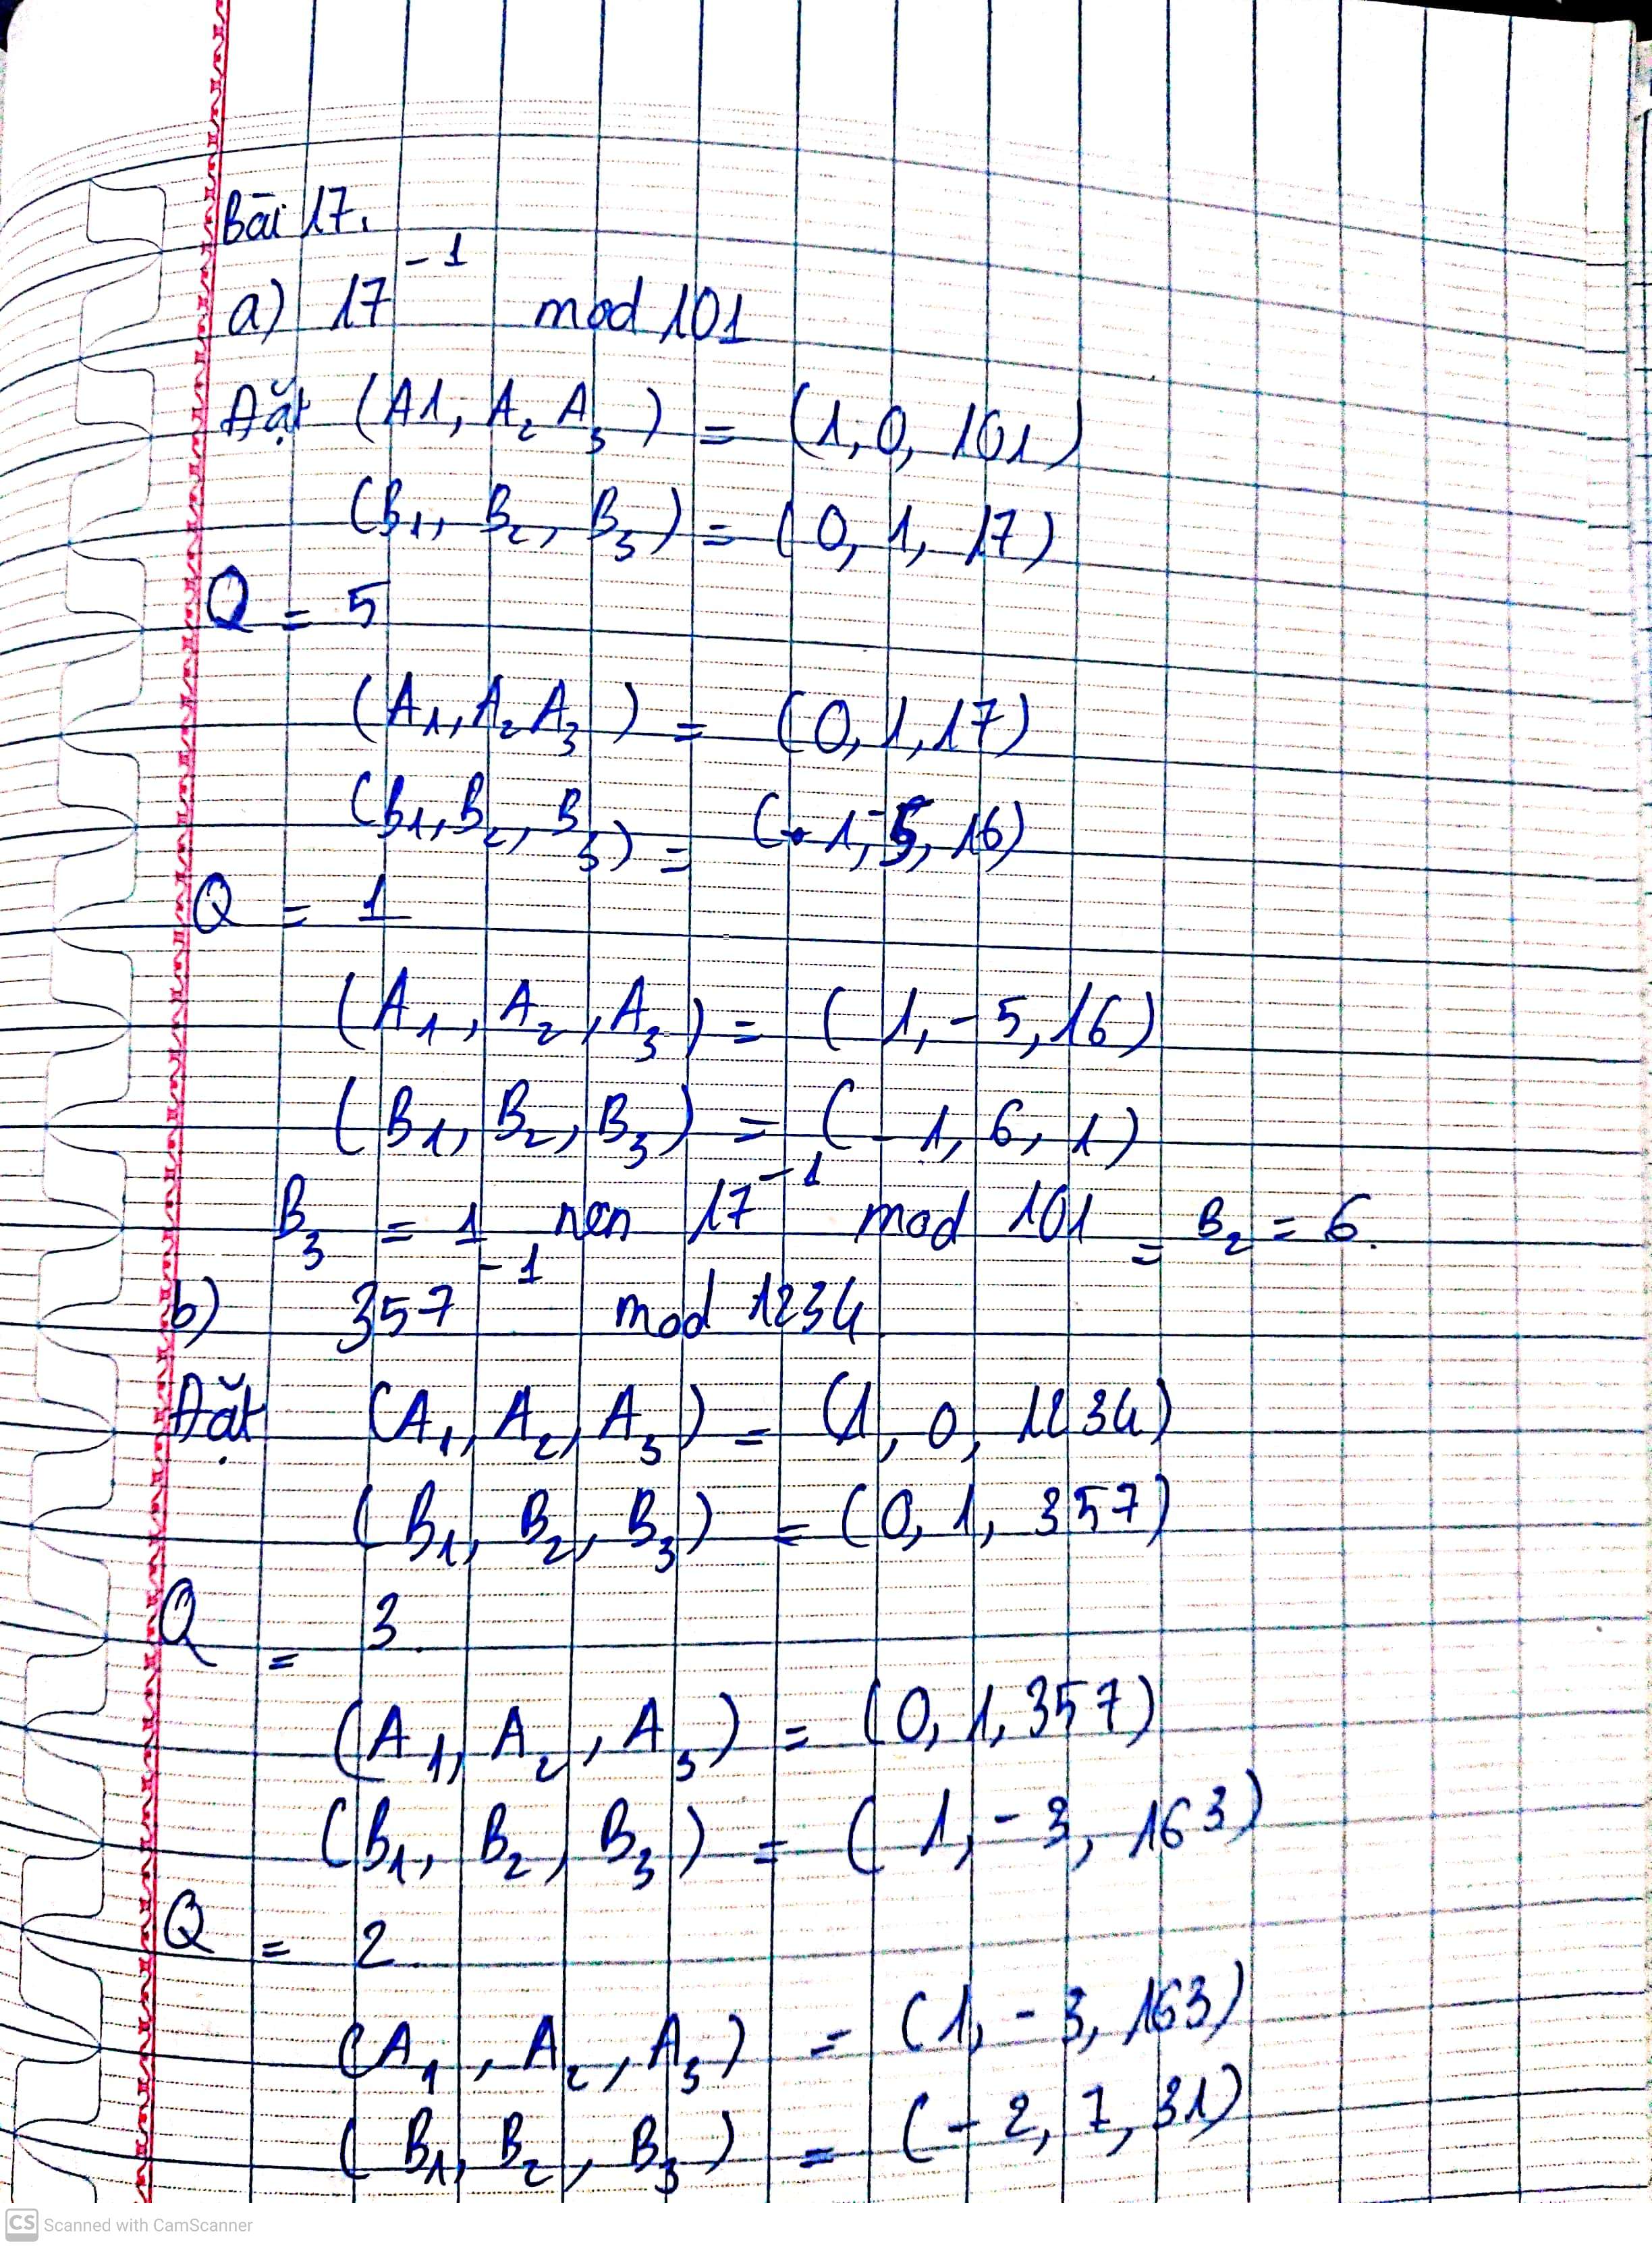 Bài 17.
a) 17⁻¹ mod 101
Đặt (A1, A₂ A₃) = (1, 0, 101)
(B₁, B₂, B₃) = (0, 1, 17)
Q = 5
(A₁, A₂ A₃) = (0, 1, 17)
(B₁, B₂, B₃) = (1, -5, 16)
Q = 1
(A₁, A₂, A₃) = (1, -5, 16)
(B₁, B₂, B₃) = (-1, 6, 1)
B₃ = 1 nên 17⁻¹ mod 101 = B₂ = 6.
b) 357⁻¹ mod 1234
Đặt (A₁, A₂, A₃) = (1, 0, 1234)
(B₁, B₂, B₃) = (0, 1, 357)
Q = 3.
(A₁, A₂, A₃) = (0, 1, 357)
(B₁, B₂, B₃) = (1, -3, 163)
Q = 2
(A₁, A₂, A₃) = (1, -3, 163)
(B₁, B₂, B₃) = (-2, 7, 31)
CS Scanned with CamScanner